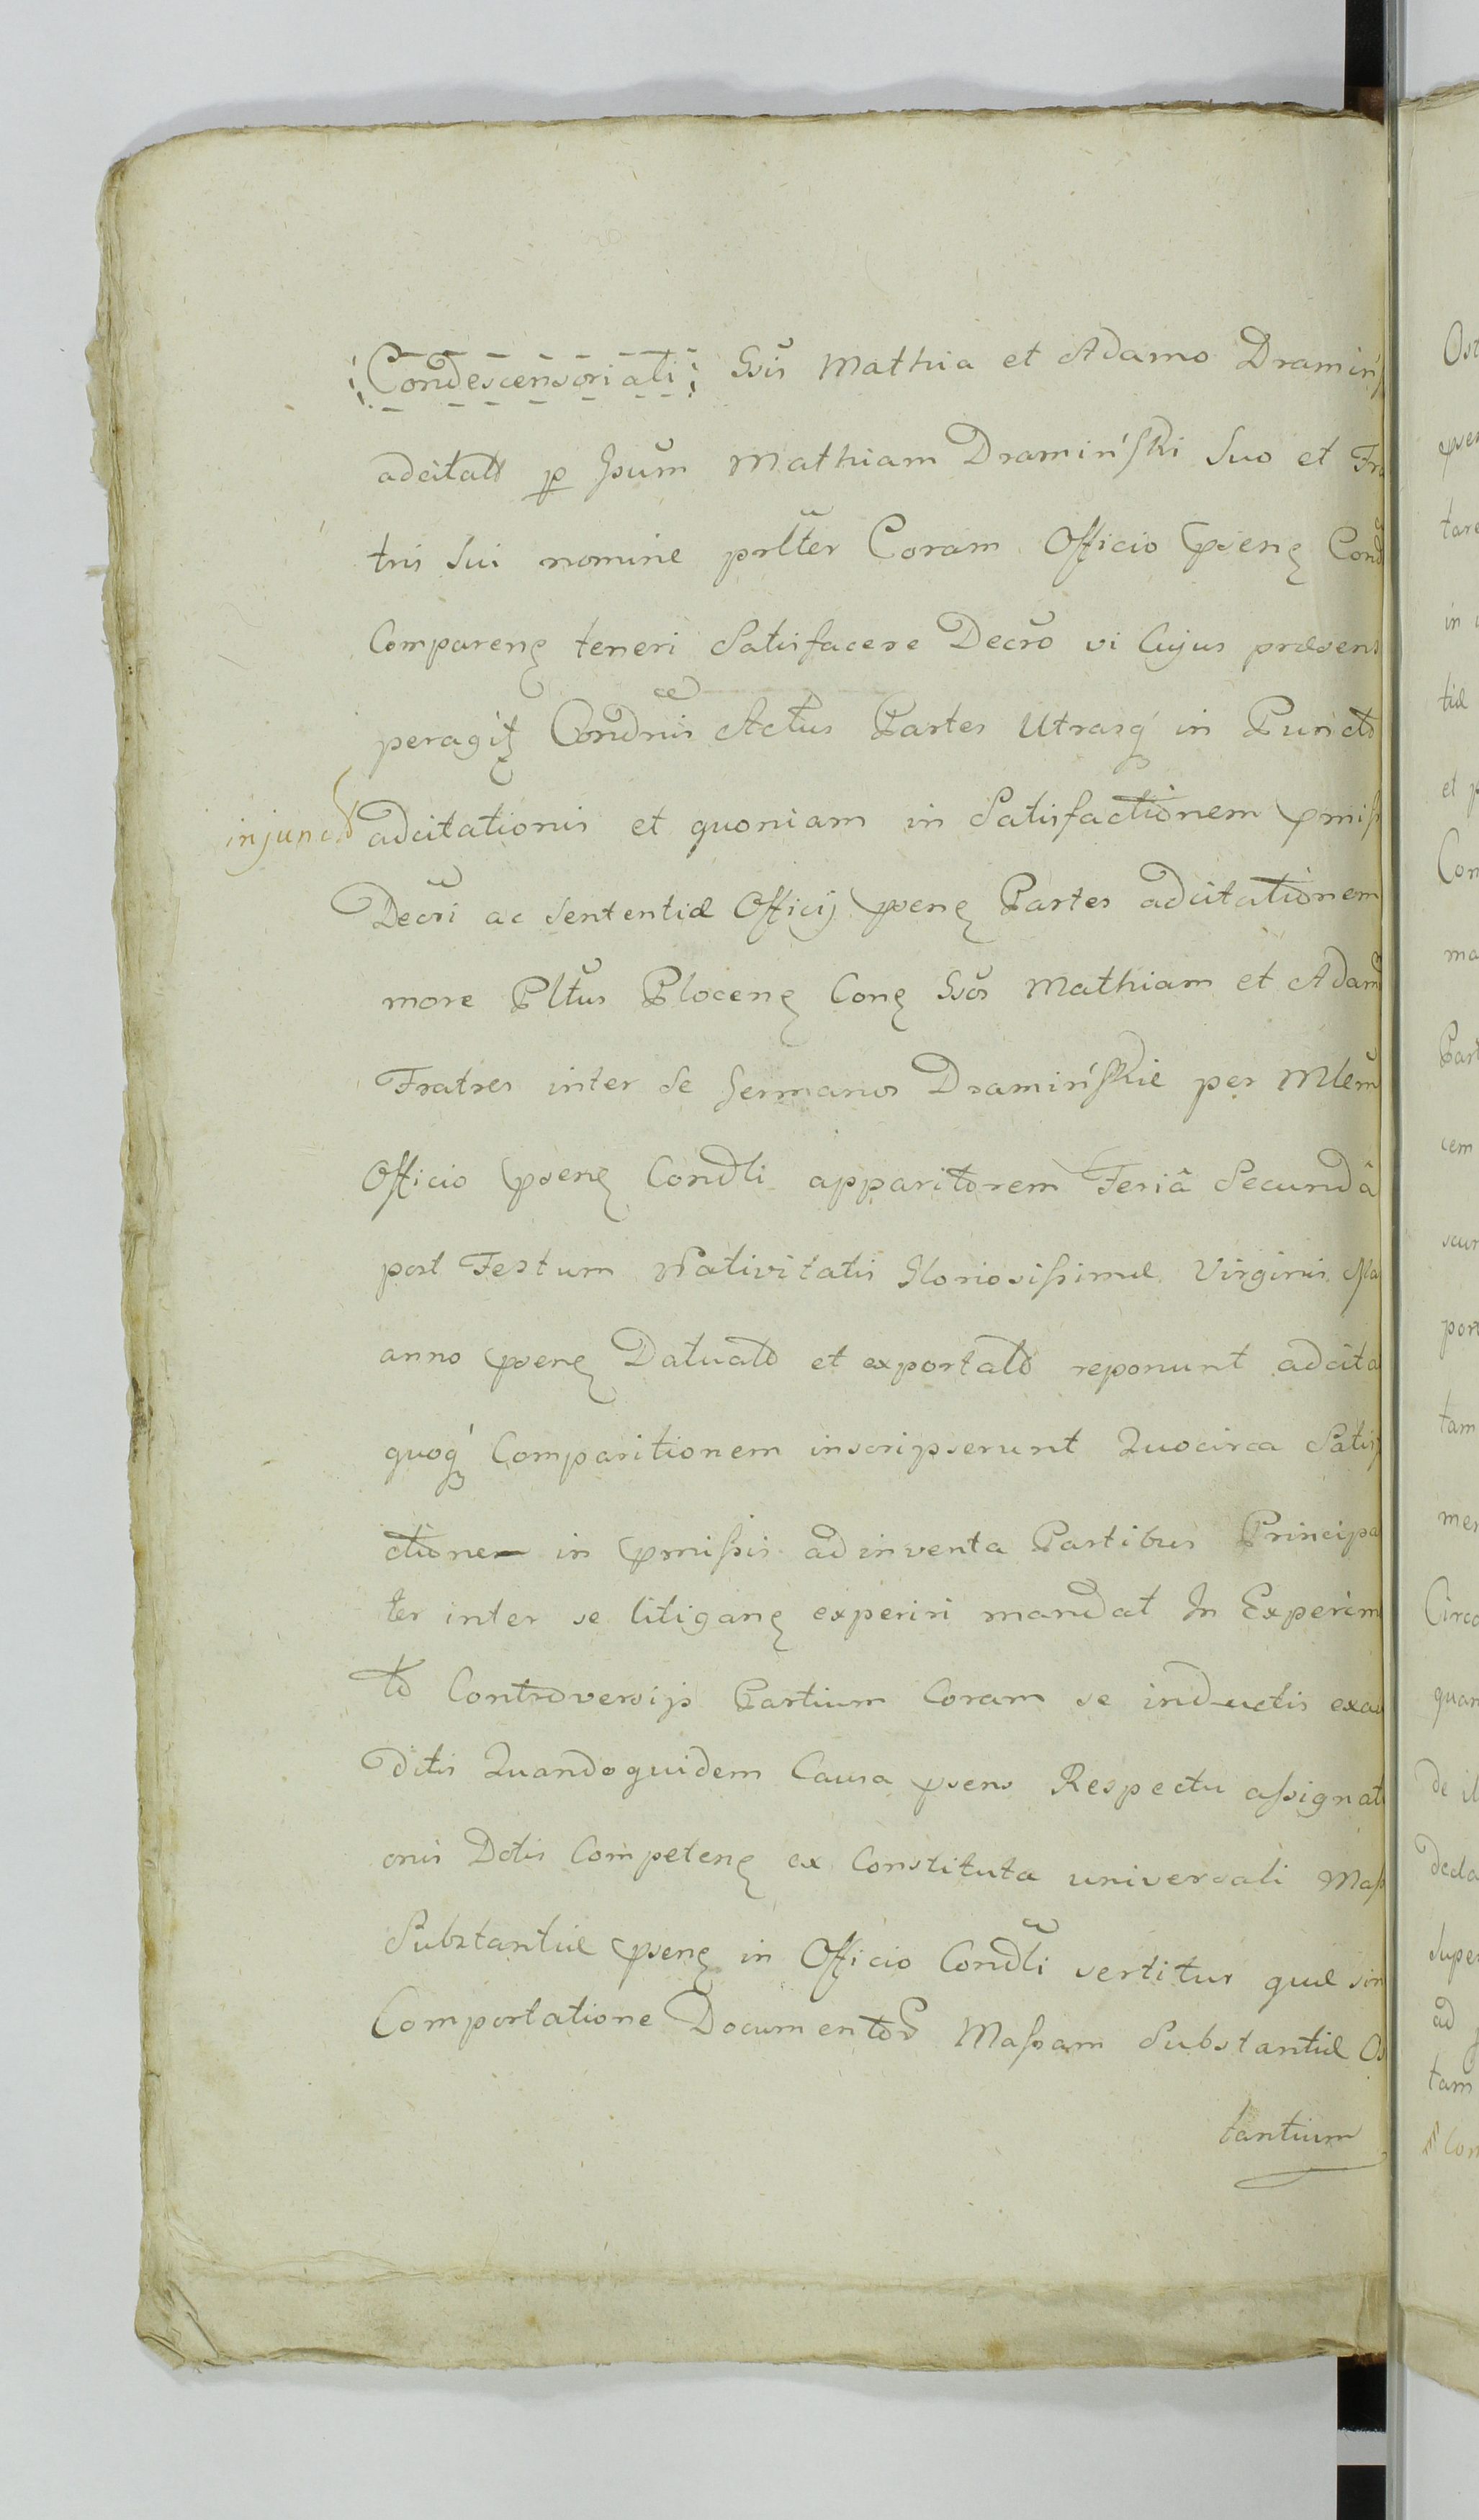 Condescensoriali Gsis Mathia et Adamo Dramińs
adcitato p Gsum Mathiam Dramiński Suo et Fra
tris Sui nomine prltter Coram Officio psenę Cond
Comparenę teneri Satisfacere Decro vi Cujus præsens
peragitz Condnis Actus Partes Utrasq in Puncto
injuncto adcitationis et quoniam in Satisfactionem pmiss
Decri ac Sententiæ Officij psenę Partes adcitationem
more Pltus Plocenę Conę Gsos Mathiam et Adam
Fratres inter Se Germanos Dramińskie per Mlem
Officio psenę Condli apparitorem Feriâ Secundâ
post Festum Nativitatis Gloriosissimæ Virginis Ma
anno psenę Datuato et exportato reponunt adcita
quoq Comparitionem inscripserunt Quocirca Satisf
ctione in pmissis adinventa Partibus Principa
ter inter se litiganę experiri mandat In Experim
to Controversijs Partium Coram se inductis exau
ditis Quandoquidem Causa psens Respectu assignati
onis Dotis Competenę ex Constituta universali Mass
Substantiæ psenę in Officio Condli vertitur quæ sin
Comportatione Documentor Massam Substantiæ Os
tantium
Ost
tare
in
tiæ
et p
Con
ma
Part
cem
port
tam
mer
Circa
quan
de il
decla
super
ad
tam
Con